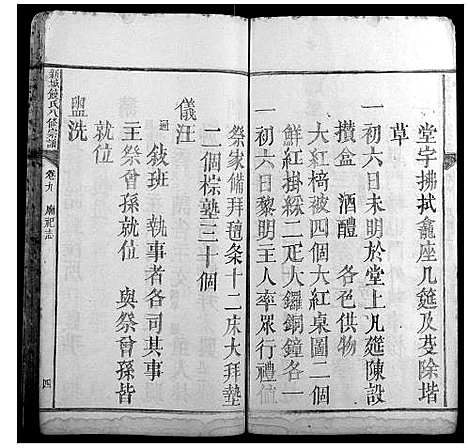 堂宇拂拭龕座几筵及芟除堦
草
一初六日未明於堂上几筵陳設
攢盒　酒醴　各色供物
大紅椅被四個大紅桌圍二個
鮮紅掛綵二疋大鑼銅鐘各一
一初六日黎明主人率眾行禮位
祭家備拜毡条十二床大拜墊
二個棕墊三十個
儀注
通　敍班　執事者各司其事
主祭曾孫就位　與祭曾孫皆
就位
盥洗
新城饒氏八修宗譜
卷九　廟祀志
四